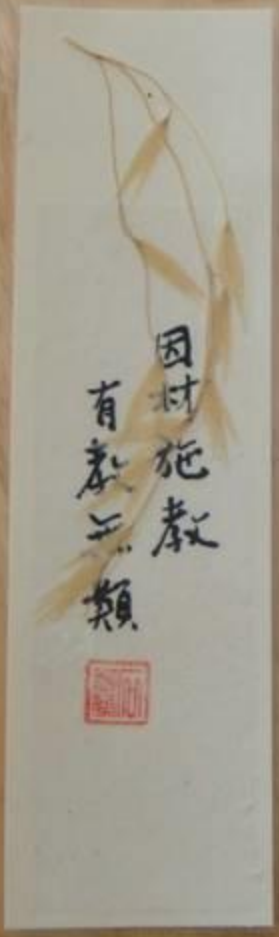 因材施教
有教无類